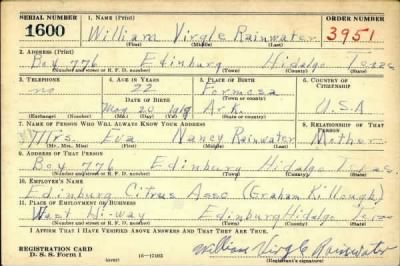 SERIAL NUMBER 1. NAME (Print) ORDER NUMBER
1600 William Virgle Rainwater 3951
(First) (Middle) (Last)
2. ADDRESS (Print)
Box 776 Edinburg Hidalgo Texas
(Number and street or R. F. D. number) (Town) (County) (State)
3. TELEPHONE 4. AGE IN YEARS 5. PLACE OF BIRTH 6. COUNTRY OF CITIZENSHIP
no 22 Formosa
DATE OF BIRTH (Town or county)
May 20 1919 Ark. U.S.A
(Exchange) (Number) (Mo.) (Day) (Yr.) (State or country)
7. NAME OF PERSON WHO WILL ALWAYS KNOW YOUR ADDRESS 8. RELATIONSHIP OF THAT PERSON
Mrs. Eva Nancy Rainwater Mother
(Mr., Mrs., Miss) (First) (Middle) (Last)
9. ADDRESS OF THAT PERSON
Box 776 Edinburg Hidalgo Texas
(Number and street or R. F. D. number) (Town) (County) (State)
10. EMPLOYER'S NAME
Edinburg Citrus Asso (Graham Killough)
11. PLACE OF EMPLOYMENT OR BUSINESS
West Hi-way Edinburg Hidalgo Texas
(Number and street or R. F. D. number) (Town) (County) (State)
I AFFIRM THAT I HAVE VERIFIED ABOVE ANSWERS AND THAT THEY ARE TRUE.
REGISTRATION CARD
D. S. S. Form 1 (over) William Virgle Rainwater
(Registrant's signature)